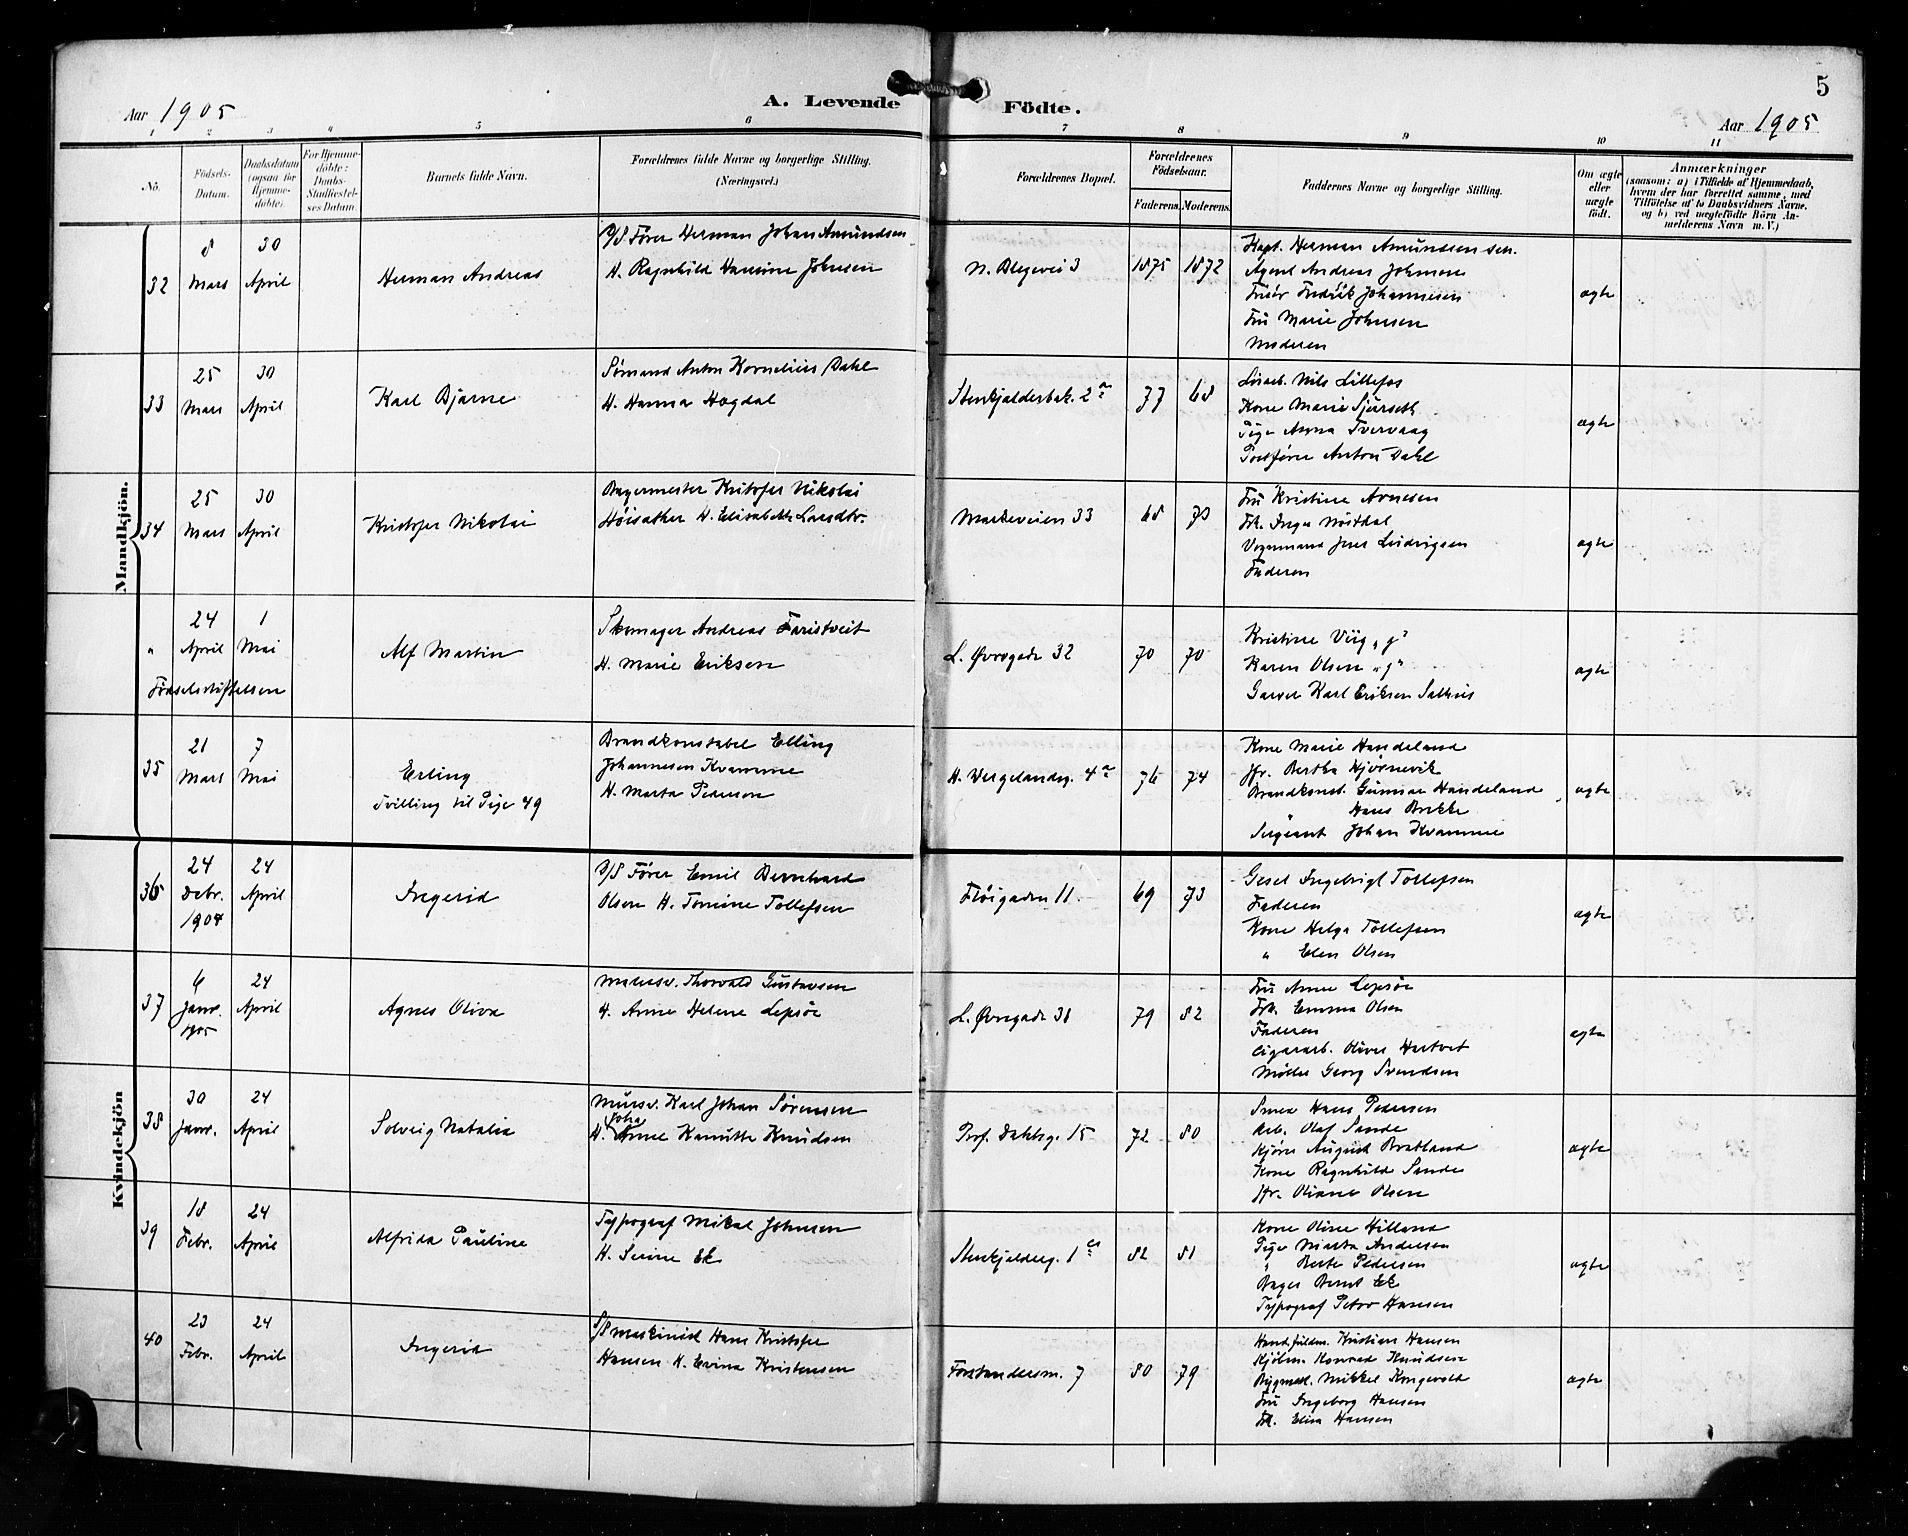 5
Aar 1905
A. Levende Födte.
Aar 1905
1 2 3 4 5 6 7 8 9 10 11
No.
Födsels-Datum.
Daabsdatum (ogsaa for Hjemme-döbte).
For Hjemme-döbte: Daabs-Stadfæstel-ses Datum.
Barnets fulde Navn.
Forældrenes fulde Navne og borgerlige Stilling.
(Næringsvei.)
Forældrenes Bopæl.
Forældrenes Födselsaar.
Faderens. Moderens.
Faddernes Navne og borgerlige Stilling.
Om ægte eller uægte födt.
Anmærkninger
(saasom: a) i Tilfælde af Hjemmedaab,
hvem der har forrettet samme, med
Tilföielse af to Daabsvidners Navne.
og b) ved uægtefödte Börn An-
melderens Navn m. V.)
Mandkjön.
32
8 Mars
30 April
Herman Andreas
D/S Fører Herman Johan Amundsen
H. Ragnhild Hansine Johnsen
N. Blegevei 3
1875 1872
Kapt. Herman Amundsen sen.
Agent Andreas Johnson
Fredrik Johannesen
Fru Marie Johnsen
Moderen
ægte
33
25 Mars
30 April
Karl Bjarne
Sømand Anton Kornelius Dahl
H. Hanna Hogdal
Stenkjelderbak. 2a
77 68
Løsarb. Nils Lillefos
Kone Marie
Pige Anna Tvervaag
Anton Dahl
ægte
34
25 Mars
30 April
Kristofer Nikolai
Bagermester Kristofer Nikolai
Høisæther H. Elisabeth
Markeveien 33
68 73
Fru Kristine Arnesen
Frk. Inga Nøstdal
Vognmand Jens Ludvigsen
Faderen
ægte
"
24 April
1 Mai
Fødselsstiftelsen
Alf Martin
Skomager Andreas Faristveit
H. Marie Eriksen
L. Øvregade 32
70 70
Kristine Viig "j"
Karen Olsen "j"
Garver Karl Eriksen Salhus
ægte
35
21 Mars
7 Mai
Erling
Tvilling til Pige 49
Brandkonstabel Elling
Johannesen Kvamme
H. Marta Pederson
H. Wergelandsg. 4a
76 74
Kone Marie Handeland
Jfr. Bertha Hjørnevik
Brandkonst. Gunnar Handeland
Hans Brekke
Sergeant Johan Kvamme
ægte
Kvindekjön
36
24 Debr. 1904
24 April
Ingerid
D/S Fører Emil Bernhard
Olsen H. Tomine Tollefsen
Fløigaden 11
69 73
Gesel Ingebrigt Tollefsen
Faderen
Kone Helga Tollefsen
" Elen Olsen
ægte
37
6 Janr. 1905
24 April
Agnes Oliva
Malersv. Thorvald Gustavsen
H. Anne Helene Lepsøe
L. Øvregade 38
79 82
Fru Anne Lepsøe
Frk. Emma Olsen
Faderen
Cigararb. Oliver Hertvet
Møller Georg Svendsen
ægte
38
30 Janr.
24 April
Solveig Natalia
Mursv. Karl Johan Sørensen
H. Anne Kanutte Knudsen
Prof. Dahlsg. 15
72 80
Smed Hans Pedersen
Arb. Olaf Sande
Kjører August Bratland
Kone Ragnhild Sande
Jfr. Oliane Olsen
ægte
39
18 Febr.
24 April
Alfrida Pauline
Typograf Mikal Johnsen
H. Serine Ek
Stenkjelderg. 1
82 81
Kone Oline Hilland
Pige Marta Andersen
" Berte Pedersen
Bager Bernt Ek
Typograf Peter Hansen
ægte
40
23 Febr.
24 April
Ingerid
D/S Maskinist Hans Kristofer
Hansen H. Evina Kristensen
Forstandersm. 7
80 79
Kristian Hansen
Kjølm. Konrad Knudsen
Bygmest. Mikkel Kongevold
Fru Ingeborg Hansen
Frk. Elisa Hansen
ægte